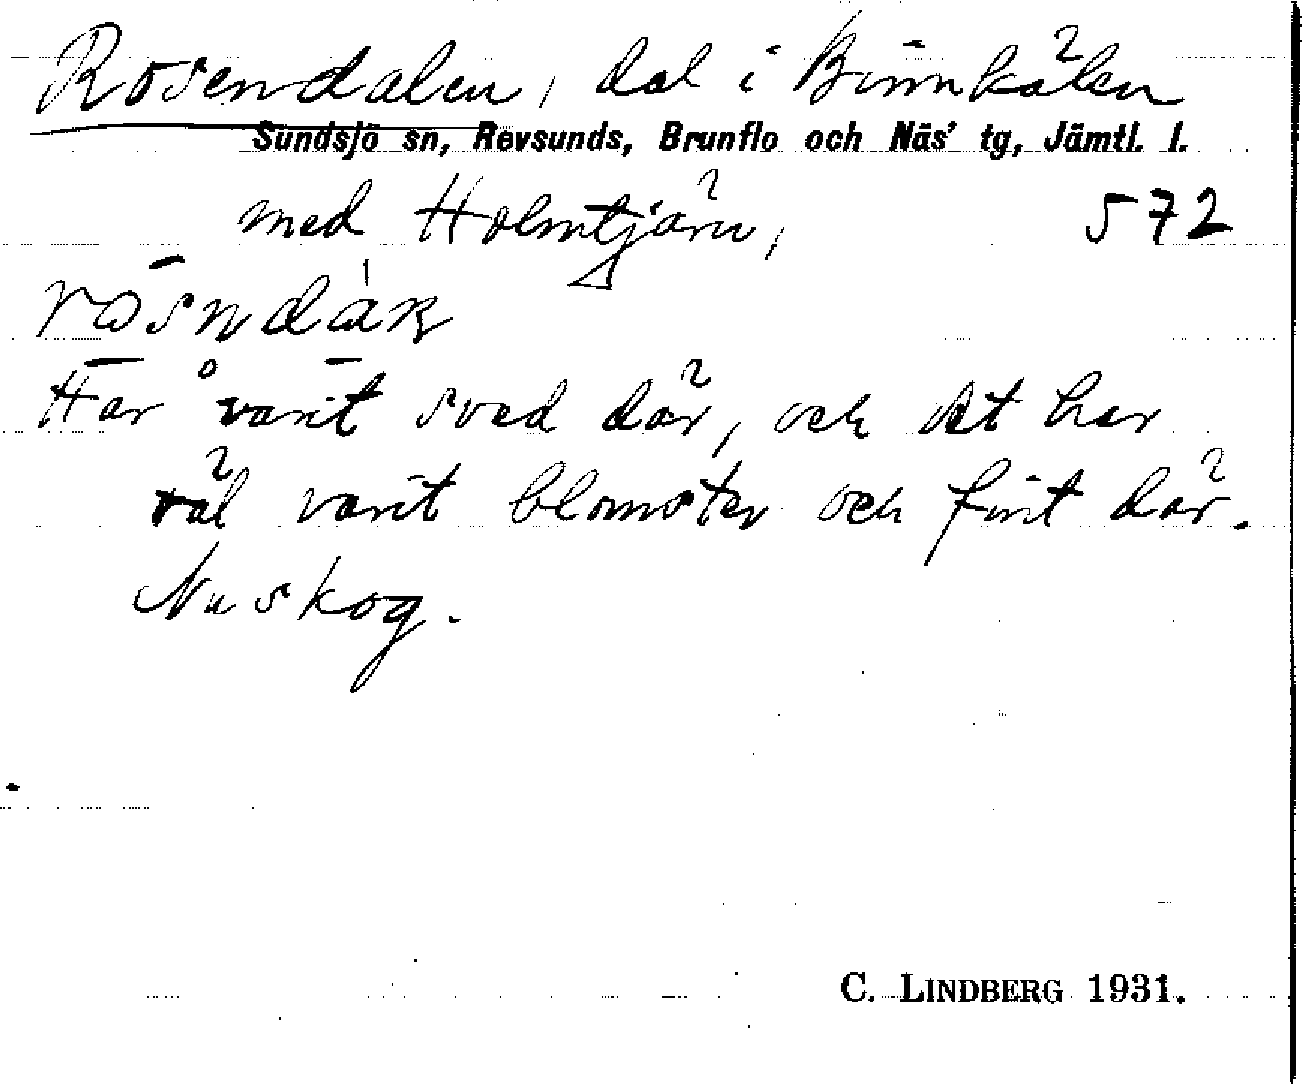 Rosendalen, dal i Binnkälen
Sundsjö sn, Revsunds, Brunflo och Näs' tg, Jämtl. l.
med Holmtjärn, 572
Har varit sved där, och det har
väl varit blomster och fint där.
Nu skog.
C. LINDBERG 1931.